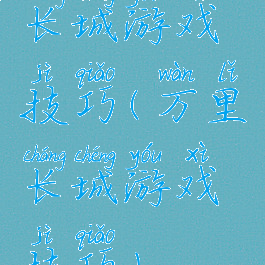 长城游戏
jì qiǎo wàn lǐ
技巧(万里
cháng chéng yóu xì
长城游戏
jì qiǎo
技巧)